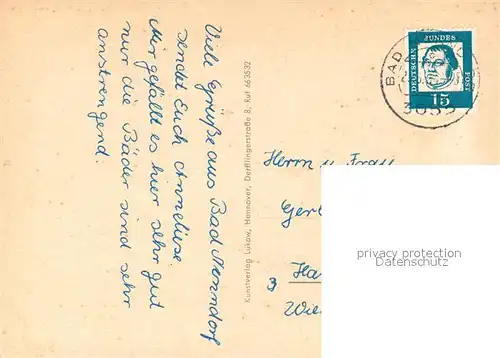 Viele Grüße aus Bad Nenndorf
sendet Euch Anneliese.
Mir gefällt es hier sehr gut
nur die Bäder sind sehr
anstrengend.
Kunstverlag Lukow, Hannover, Derfflingerstraße 8, Ruf 663532
DEUTSCHE
BUNDES
POST
15
BAD
3053
Herrn u. Frau
Ger
3 Ha
Wie
privacy protection
Datenschutz